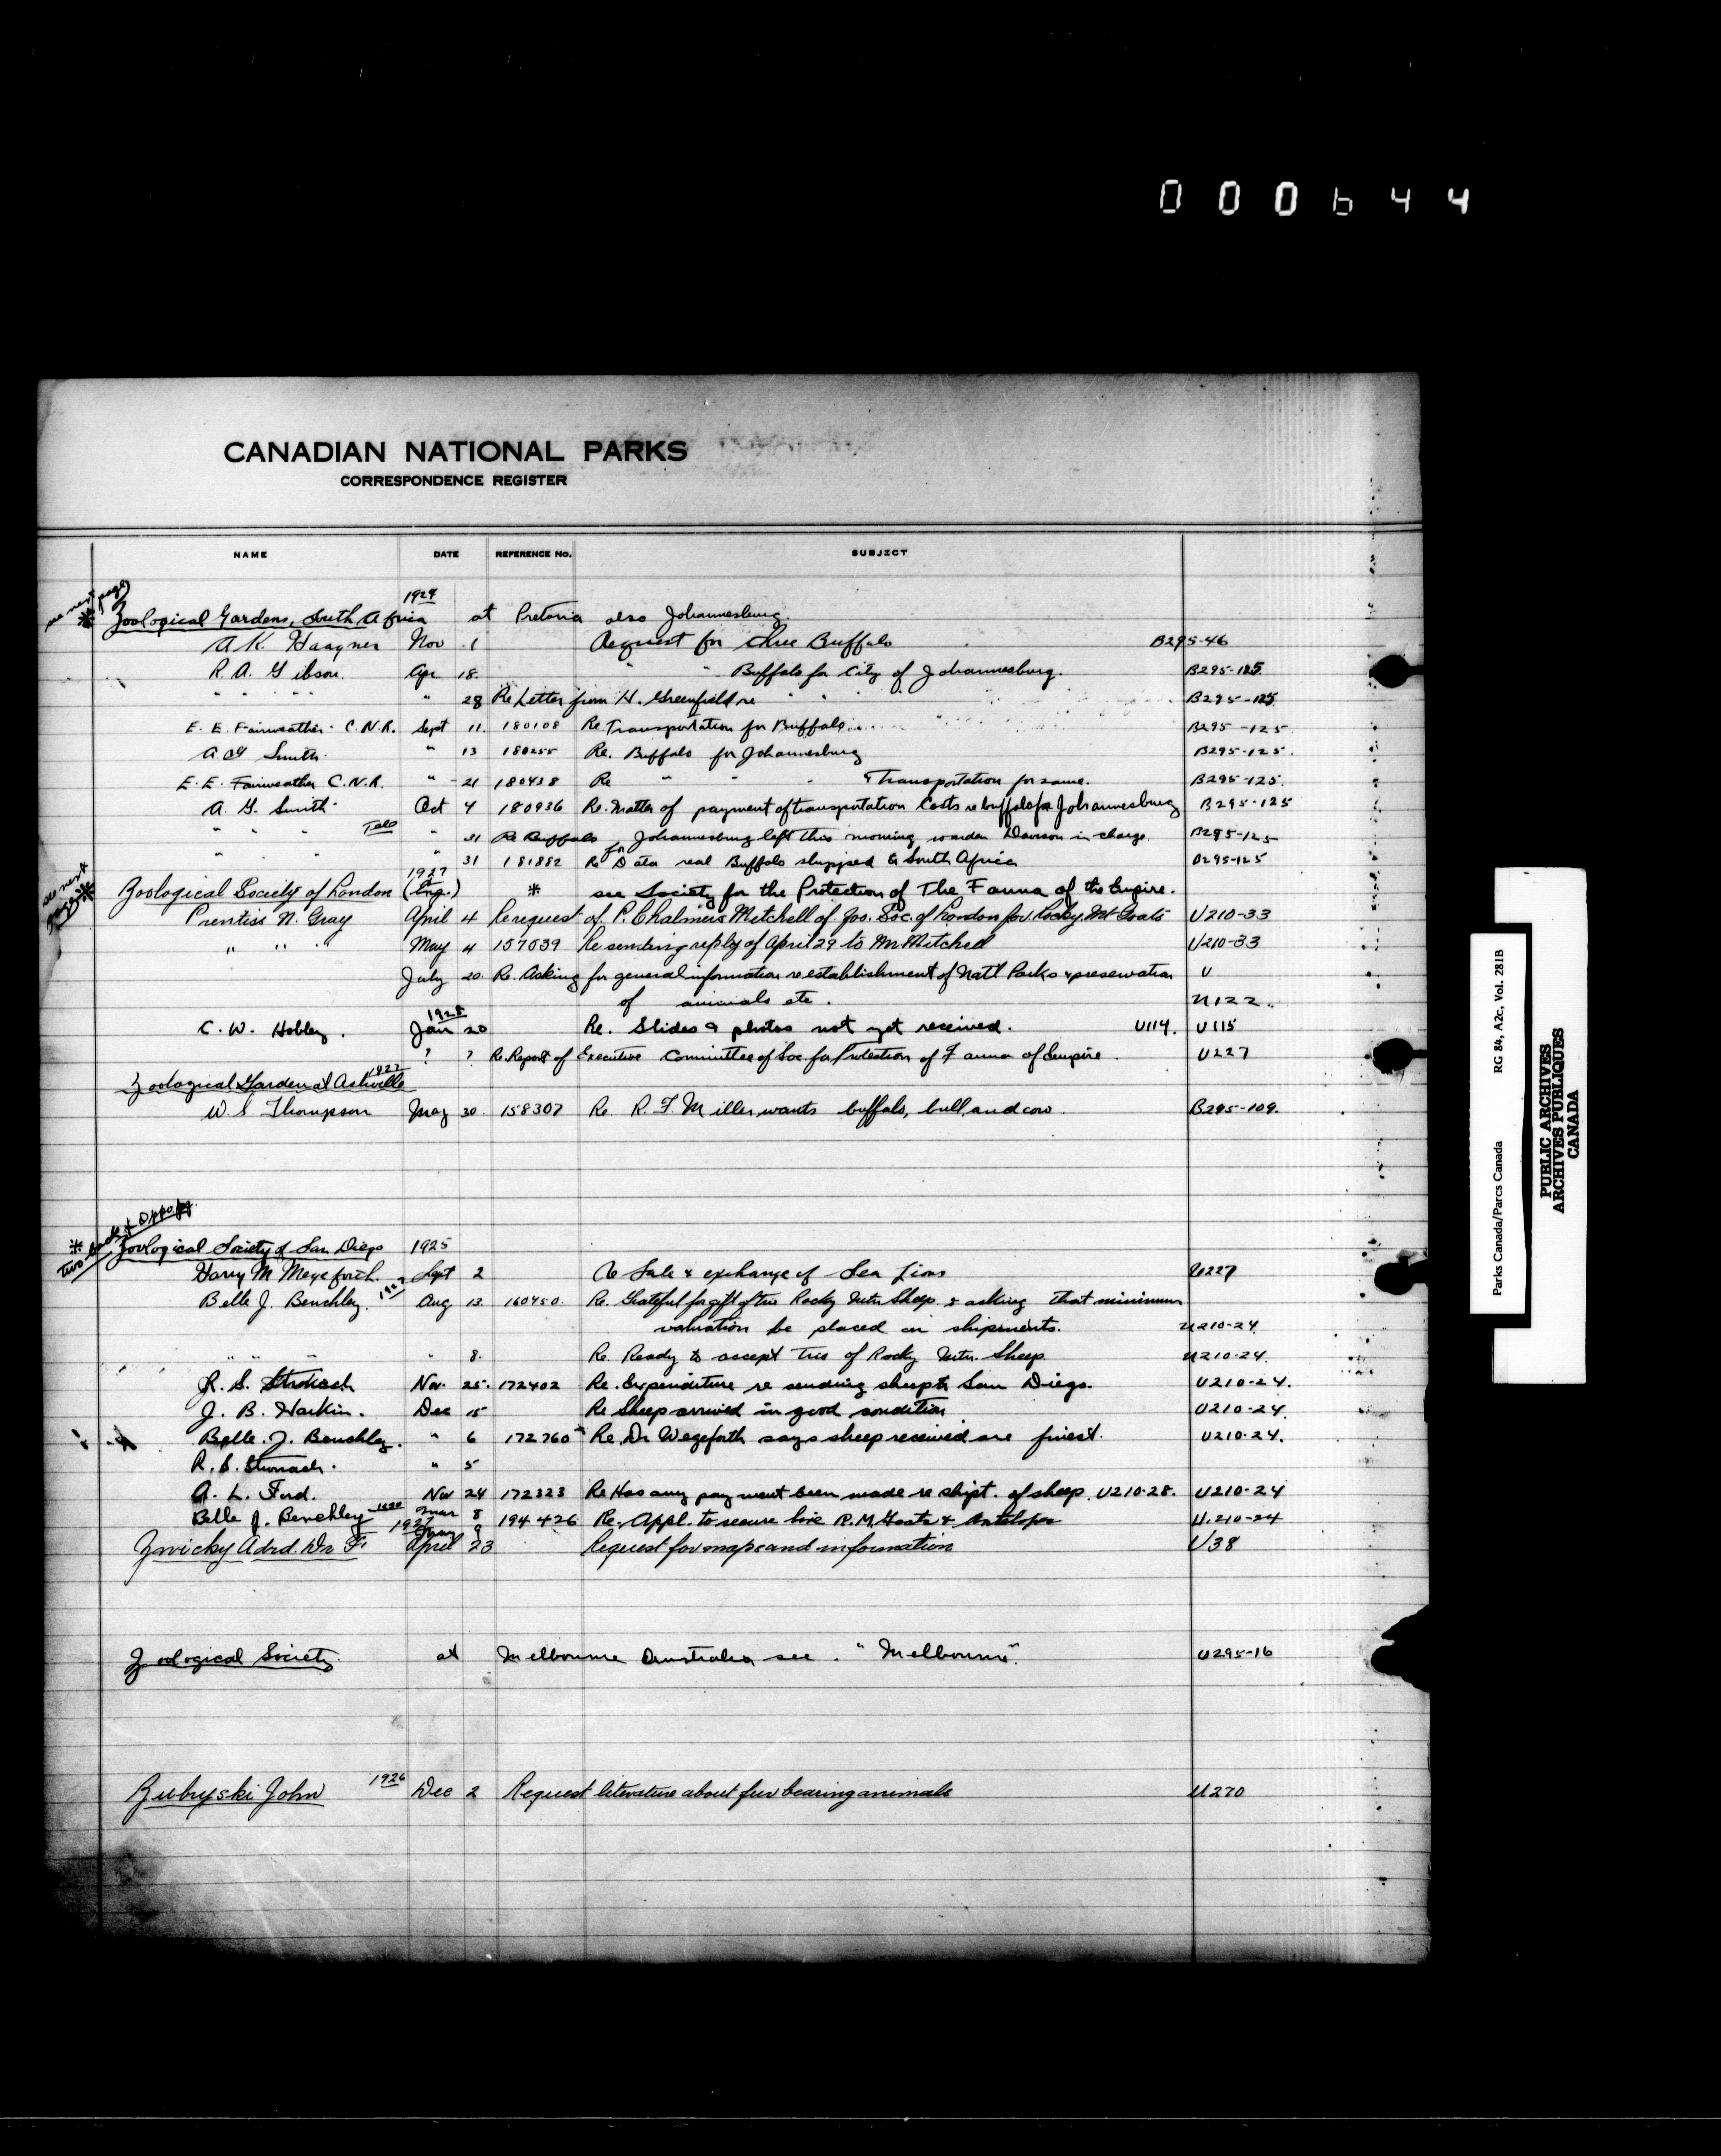 000644
CANADIAN NATIONAL PARKS
CORRESPONDENCE REGISTER
NAME DATE REFERENCE No. SUBJECT
see next page
* Zoological Gardens, South Africa at Pretoria also Johannesburg.
A K. Haagner Nov 1 Request for three Buffalo B295-46
R. A. Gibson. Apr 18. " " Buffalo for City of Johannesburg. B295-125
" " " " 28 Re Letter from H. Greenfield re " " B295-125
E. E. Fairweather C.N.R. Sept 11. 180108 Re. Transportation for Buffalo B295-125
A G Smith " 13 180255 Re. Buffalo for Johannesburg B295-125.
E. E. Fairweather C.N.R. " 21 180438 Re " " " & Transportation for same. B295-125.
A. G. Smith Oct 4 180936 Re. Matter of payment of transportation Costs re buffalo for Johannesburg B295-125
" " " Tele " 31 Re Buffalo for Johannesburg left this morning warden Davison in charge. B295-125
" " " " 31 181882 Re Data real Buffalo shipped to South Africa B295-125
see next page
1927
* Zoological Society of London (Eng.) * see Society for the Protection of The Fauna of the Empire.
Prentiss N. Gray April 4 Re request of P. Chalmers Mitchell of Zoo. Soc. of London for Rocky Mt Goats U210-33
" " " May 4 157039 Re sending reply of April 29 to Mr Mitchell U210-33
July 20 Re. Asking for general information re establishment of Nat'l Parks & preservation U
of animals etc. U122.
1928
C. W. Hobley. Jan 20 Re. Slides & photos not yet received. U114. U115
? ? Re. Report of Executive Committee of Soc. for Protection of Fauna of Empire. U227
1927
Zoological Garden at Ashville
W S Thompson May 30 158307 Re R. F. Miller wants buffalo, bull, and cow. B295-109.
* two back & oppo pg.
Zoological Society of San Diego 1925
Harry M Wegeforth. Sept 2 Re Sale & exchange of Sea Lions U227
Belle J. Benchley. Aug 13 160450. Re. Grateful for gift of two Rocky Mtn Sheep & asking that minimum
valuation be placed on shipments. U210-24
" " " " 8. Re. Ready to accept trio of Rocky Mtn. Sheep U210-24.
R. S. Stronach Nov. 25. 172402 Re. Expenditure re sending sheep to San Diego. U210-24.
J. B. Harkin. Dec 15 Re Sheep arrived in good condition U210-24.
Belle. J. Benchley. " 6 172760 Re. Dr Wegeforth says sheep received are finest. U210-24.
R. S. Stronach. " 5
A. L. Ford. Nov 24 172323 Re Has any payment been made re shipt. of sheep. U210-28. U210-24
Belle J. Benchley Mar 8 194426 Re. Appl. to secure live R.M. Goats & Antelope U.210-24
April 23 Request for maps and information U38
Zoological Society. at Melbourne Australia see "Melbourne". U295-16
Zubryski John 1926 Dec 2 Request literature about fur bearing animals U270
Parks Canada/Parcs Canada RG 84, A2c, Vol. 281B
PUBLIC ARCHIVES
ARCHIVES PUBLIQUES
CANADA